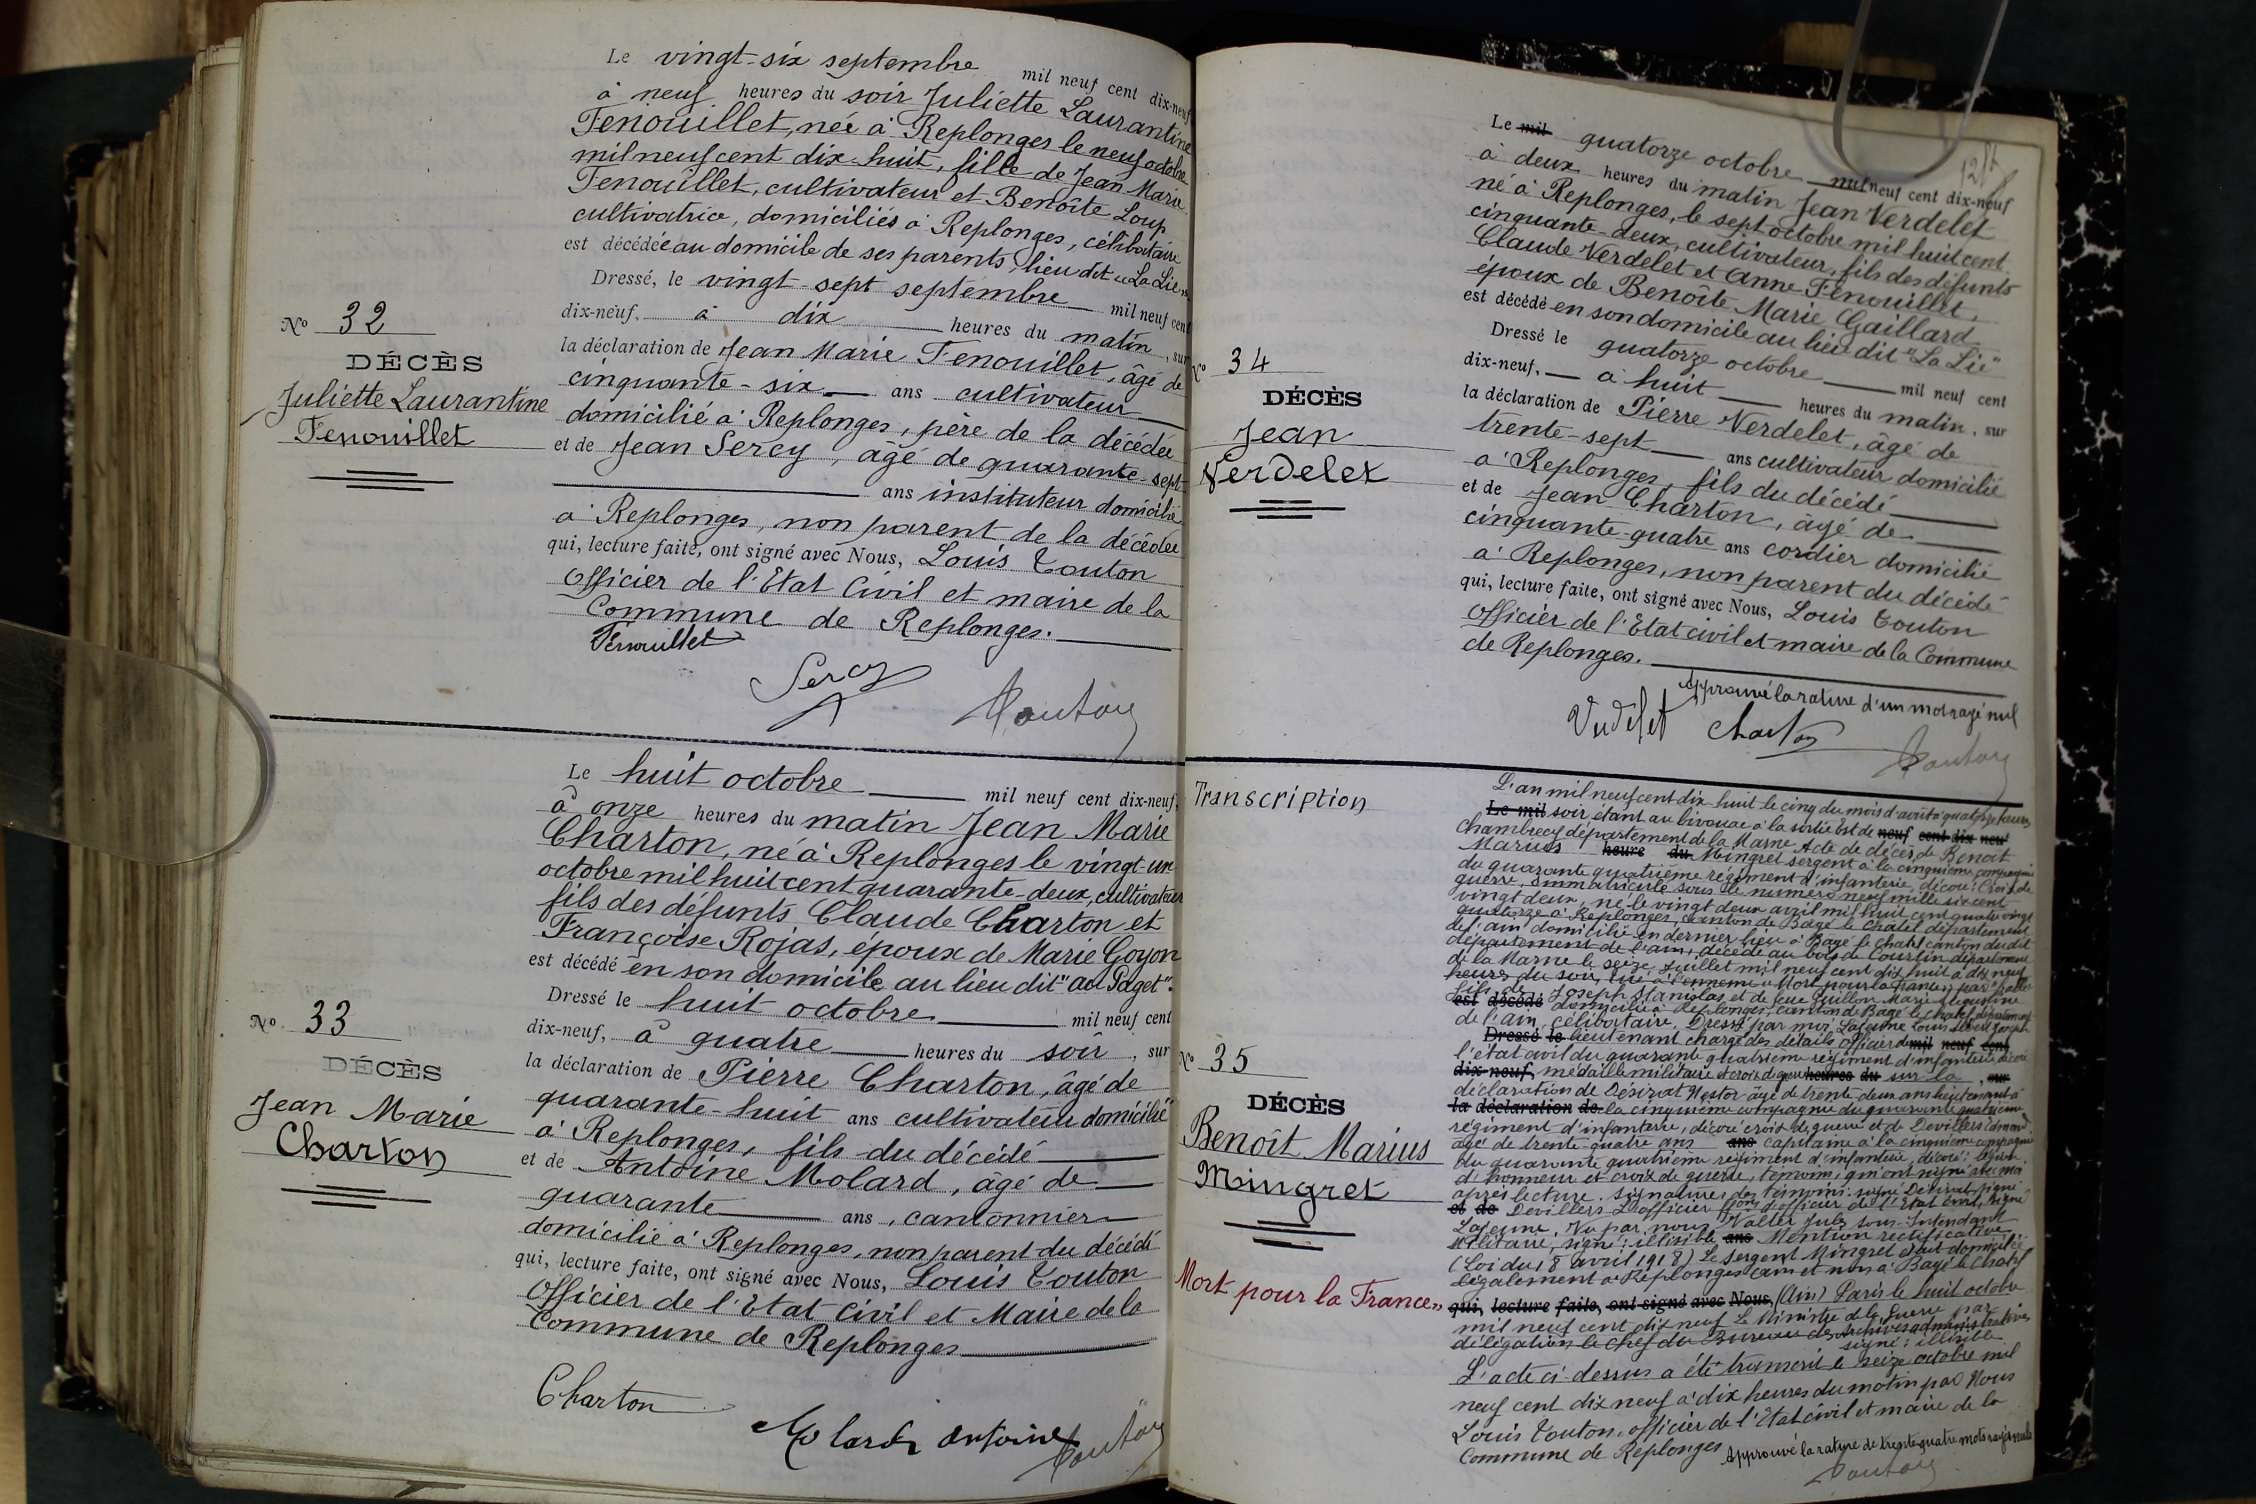 Le vingt-six septembre mil neuf cent dix-neuf
à neuf heures du soir Juliette Laurantine
Fenouillet, née à Replonges le neuf octobre
mil neuf cent dix-huit, fille de Jean Marie
Fenouillet, cultivateur et Benoîte Loup
cultivatrice, domiciliés à Replonges, célibataire
est décédée au domicile de ses parents, lieu dit "La Lie"
Dressé, le vingt-sept septembre mil neuf cent
dix-neuf, à dix heures du matin, sur
la déclaration de Jean Marie Fenouillet, âgé de
cinquante-six ans cultivateur
domicilié à Replonges, père de la décédée
et de Jean Sercy, âgé de quarante-sept
ans instituteur domicilié
à Replonges, non parent de la décédée
qui, lecture faite, ont signé avec Nous, Louis Touton
Officier de l'Etat Civil et maire de la
Commune de Replonges.
Fenouillet
Sercy
Touton
N° 32
DÉCÈS
Juliette Laurantine
Fenouillet
Le huit octobre mil neuf cent dix-neuf,
à onze heures du matin Jean Marie
Charton, né à Replonges le vingt-un
octobre mil huit cent quarante-deux, cultivateur
fils des défunts Claude Charton et
Françoise Rojas, époux de Marie Goyon
est décédé en son domicile au lieu dit "au Paget".
Dressé le huit octobre mil neuf cent
dix-neuf, à quatre heures du soir, sur
la déclaration de Pierre Charton, âgé de
quarante-huit ans cultivateur domicilié
à Replonges, fils du décédé
et de Antoine Molard, âgé de
quarante ans, cantonnier
domicilié à Replonges, non parent du décédé
qui, lecture faite, ont signé avec Nous, Louis Touton
Officier de l'Etat Civil et Maire de la
Commune de Replonges
Charton
Molard Antoine
Touton
N° 33
DÉCÈS
Jean Marie
Charton
Le mil quatorze octobre mil neuf cent dix-neuf
à deux heures du matin Jean Verdelet
né à Replonges, le sept octobre mil huit cent
cinquante-deux, cultivateur, fils des défunts
Claude Verdelet et Anne Fenouillet,
époux de Benoîte Marie Gaillard
est décédé en son domicile au lieu dit "La Lie"
Dressé le quatorze octobre mil neuf cent
dix-neuf, à huit heures du matin, sur
la déclaration de Pierre Verdelet, âgé de
trente-sept ans cultivateur domicilié
à Replonges, fils du décédé
et de Jean Charton, âgé de
cinquante-quatre ans cordier domicilié
à Replonges, non parent du décédé
qui, lecture faite, ont signé avec Nous, Louis Touton
Officier de l'Etat civil et maire de la Commune
de Replonges.
Approuvé la rature d'un mot rayé nul
Verdelet Charton
Touton
N° 34
DÉCÈS
Jean
Verdelet
Transcription
L'an mil neuf cent dix-huit le cinq du mois d'août à quatorze heures
Le mil soir étant au bivouac à la sortie Est de neuf cent dix-neuf
Chambrecy département de la Marne Acte de décès de Benoit
Marius heure du Mingret sergent à la cinquième compagnie
du quarante quatrième régiment d'infanterie, décoré: Croix de
guerre, immatriculé sous le numéro neuf mille six cent
vingt deux, né le vingt deux avril mil huit cent quatre vingt
quatorze à Replonges, canton de Bagé le Châtel département
de l'ain domicilié en dernier lieu à Bagé le Chatel canton du dit
département de l'ain, décédé au bois de Courtin département
de la Marne le seize Juillet mil neuf cent dix huit à dix neuf
heures du soir, tué à l'ennemi "Mort pour la France" par balle
fils de Joseph Stanislas et de feue Guillon Marie Augustine
est décédé domicilié à Replonges, canton de Bagé le Chatel département
de l'ain, célibataire. Dressé par moi, Lafeune Louis
Dressé le lieutenant chargé des détails officier de mil neuf cent
l'état civil du quarante quatrième régiment d'infanterie décoré
dix-neuf, médaille militaire et croix de guerre heures du sur la, sur
déclaration de Désirat Nestor âgé de trente deux ans lieutenant à
la déclaration de la cinquième compagnie du quarante quatrième
régiment d'infanterie, décoré croix de guerre et de Devillers
âgé de trente quatre ans ans capitaine à la cinquième compagnie
du quarante quatrième régiment d'infanterie, décoré: légion
d'honneur et croix de guerre, témoins qui ont signé avec moi
après lecture. Signature des témoins. signé Désirat signé
et de Devillers L'officier d'officier de l'Etat Civil, signé
Lafeune, Vu par nous Valter Jules sous-Intendant
militaire, signé: illisible ans Mention rectificative
(Loi du 18 avril 1918) Le sergent Mingret était domicilié
légalement à Replonges (ain et non à Bagé le Chatel
qui, lecture faite, ont signé avec Nous, (Ain) Paris le huit octobre
mil neuf cent dix neuf Le Ministre de la Guerre par
délégation le Chef du Bureau des Archives administratives
signé: illisible
L'acte ci-dessus a été transcrit le seize octobre mil
neuf cent dix neuf à dix heures du matin par Nous
Louis Touton, officier de l'Etat civil et maire de la
Commune de Replonges Approuvé la rature de trente quatre mots rayés nuls
Touton
N° 35
DÉCÈS
Benoît Marius
Mingret
Mort pour la France"